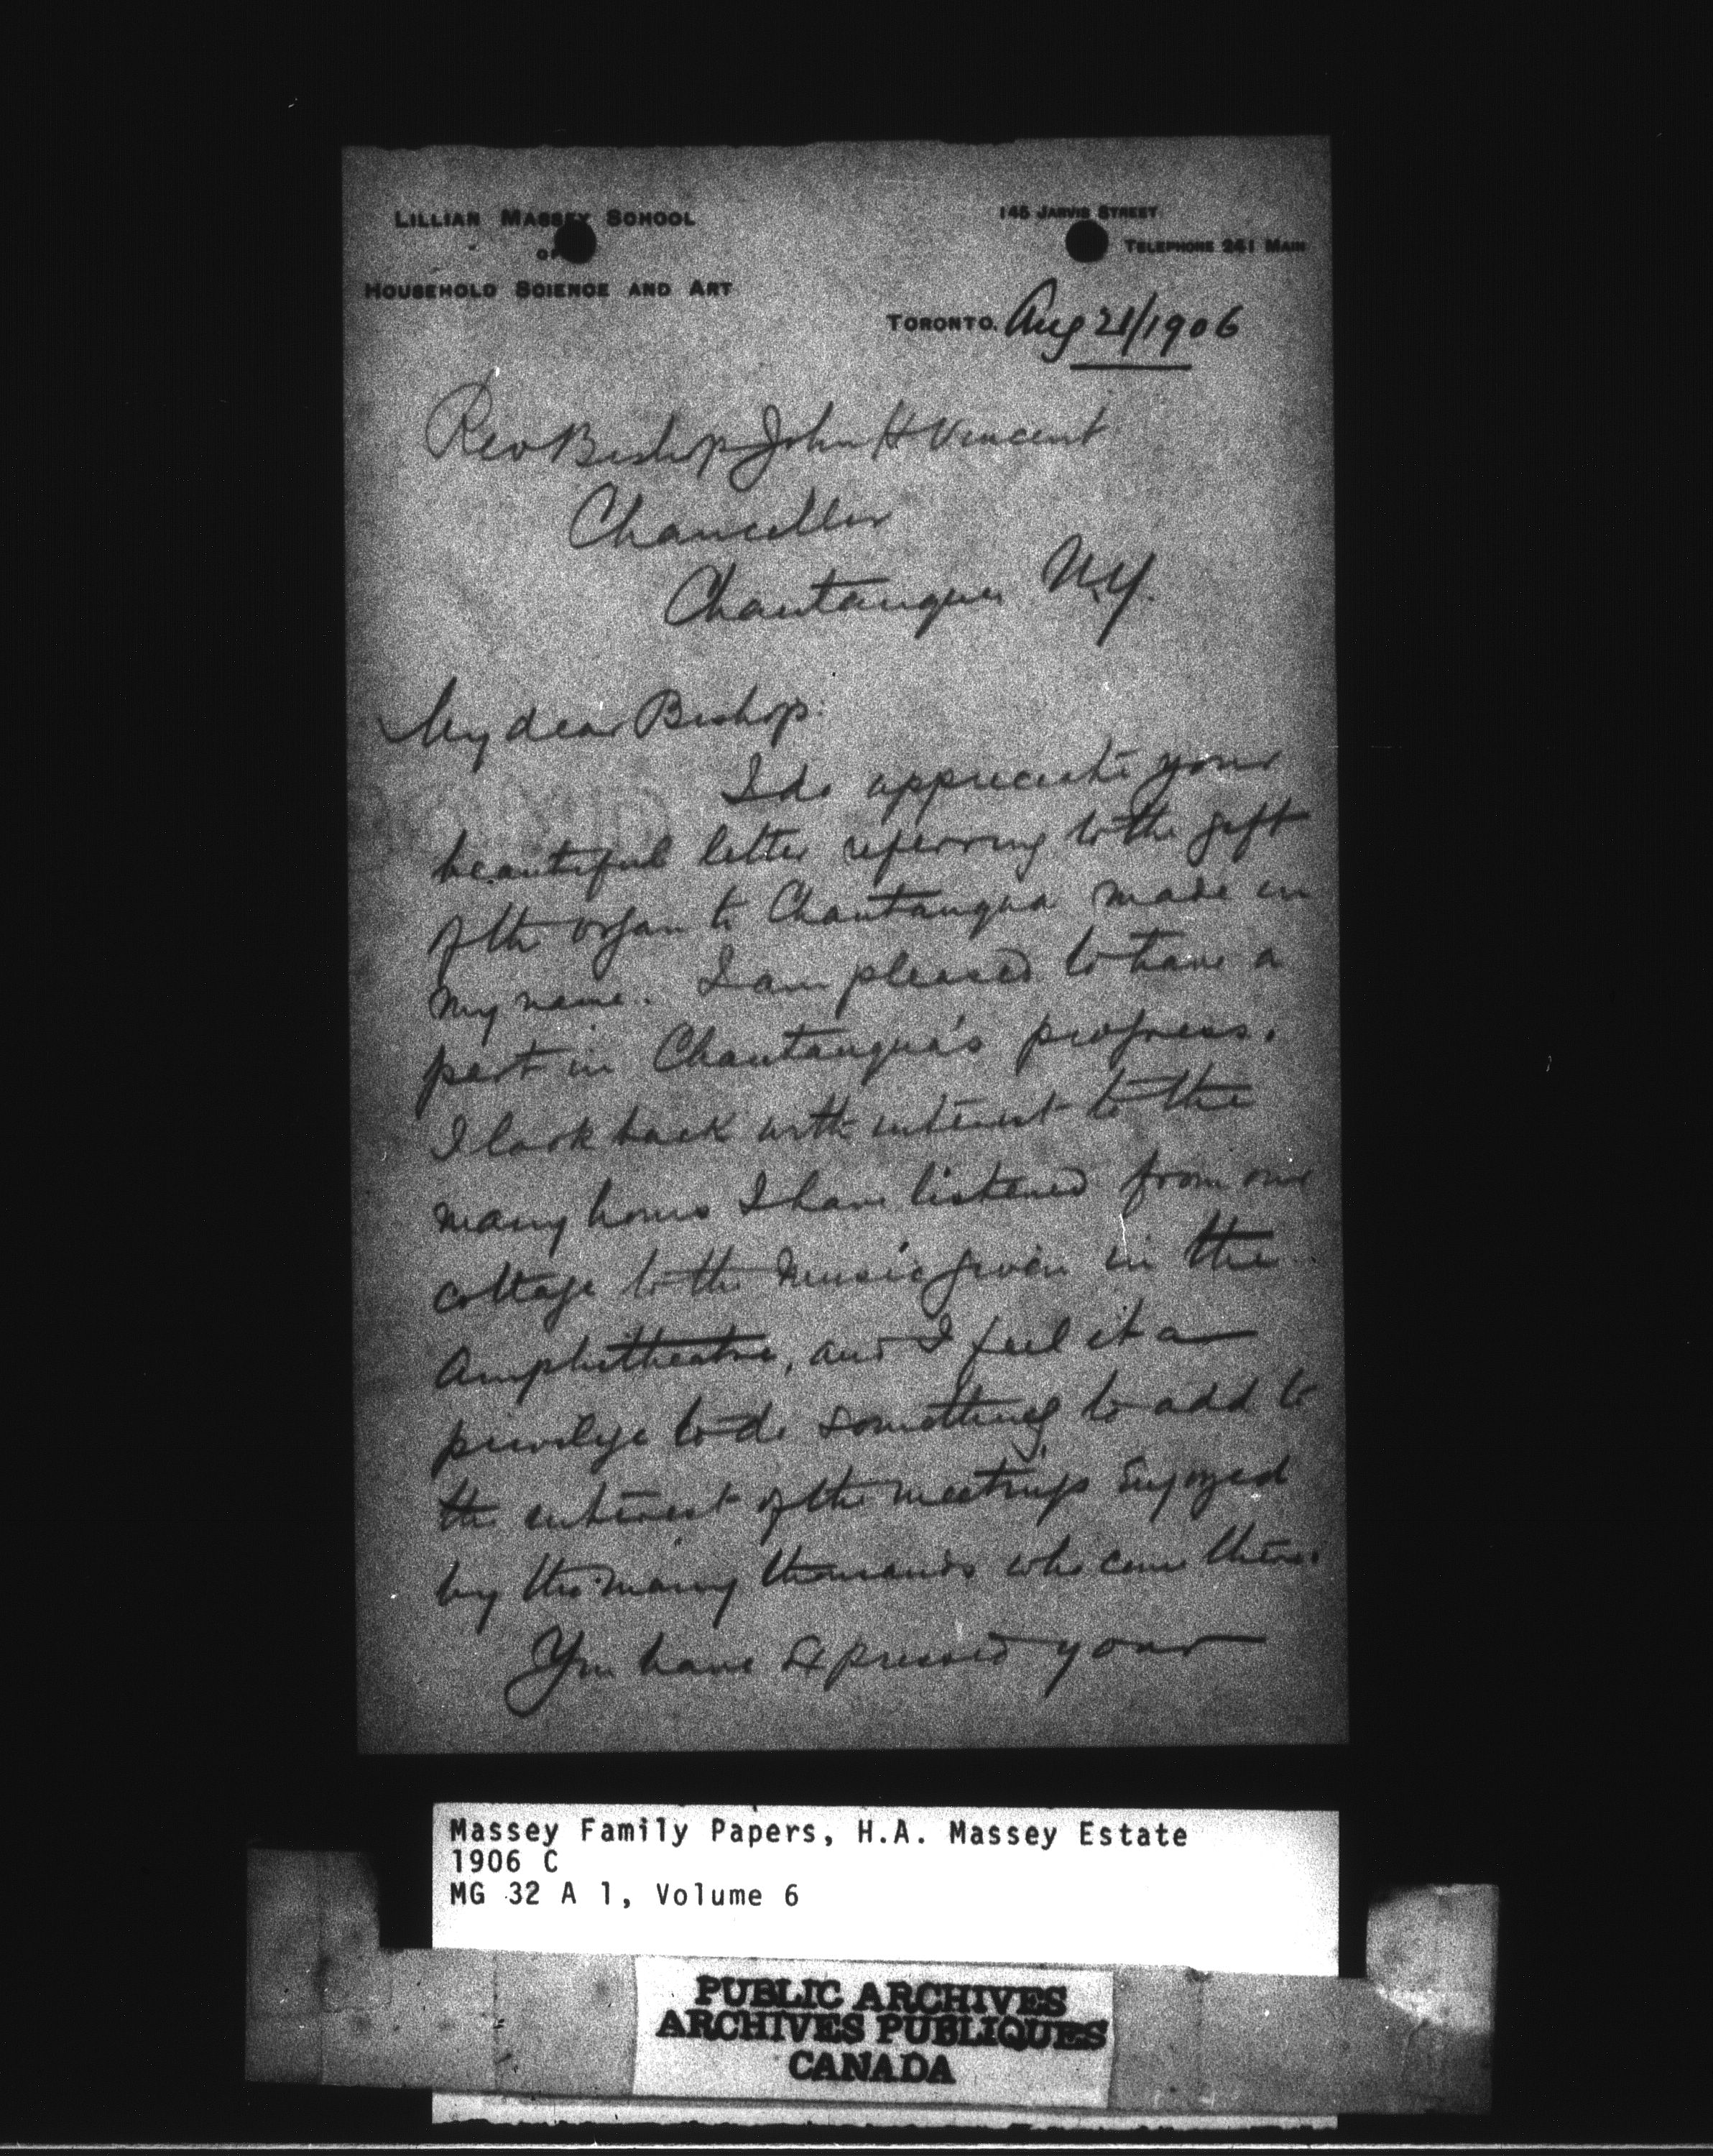 LILLIAN MASSEY SCHOOL
OF
HOUSEHOLD SCIENCE AND ART
145 JARVIS STREET
TELEPHONE 241 MAIN
TORONTO. Aug 21/1906
Rev Bishop John H Vincent
Chancellor
Chautauqua N.Y.
My dear Bishop:
I do appreciate your
beautiful letter referring to the gift
of the organ to Chautauqua made in
my name. I am pleased to have a
part in Chautauqua's progress.
I look back with interest to the
many hours I have listened from our
cottage to the music given in the
Amphitheatre, and I feel it a
privilege to do something to add to
the interest of the meetings enjoyed
by the many thousands who come there.
You have expressed your
Massey Family Papers, H.A. Massey Estate
1906 C
MG 32 A 1, Volume 6
PUBLIC ARCHIVES
ARCHIVES PUBLIQUES
CANADA